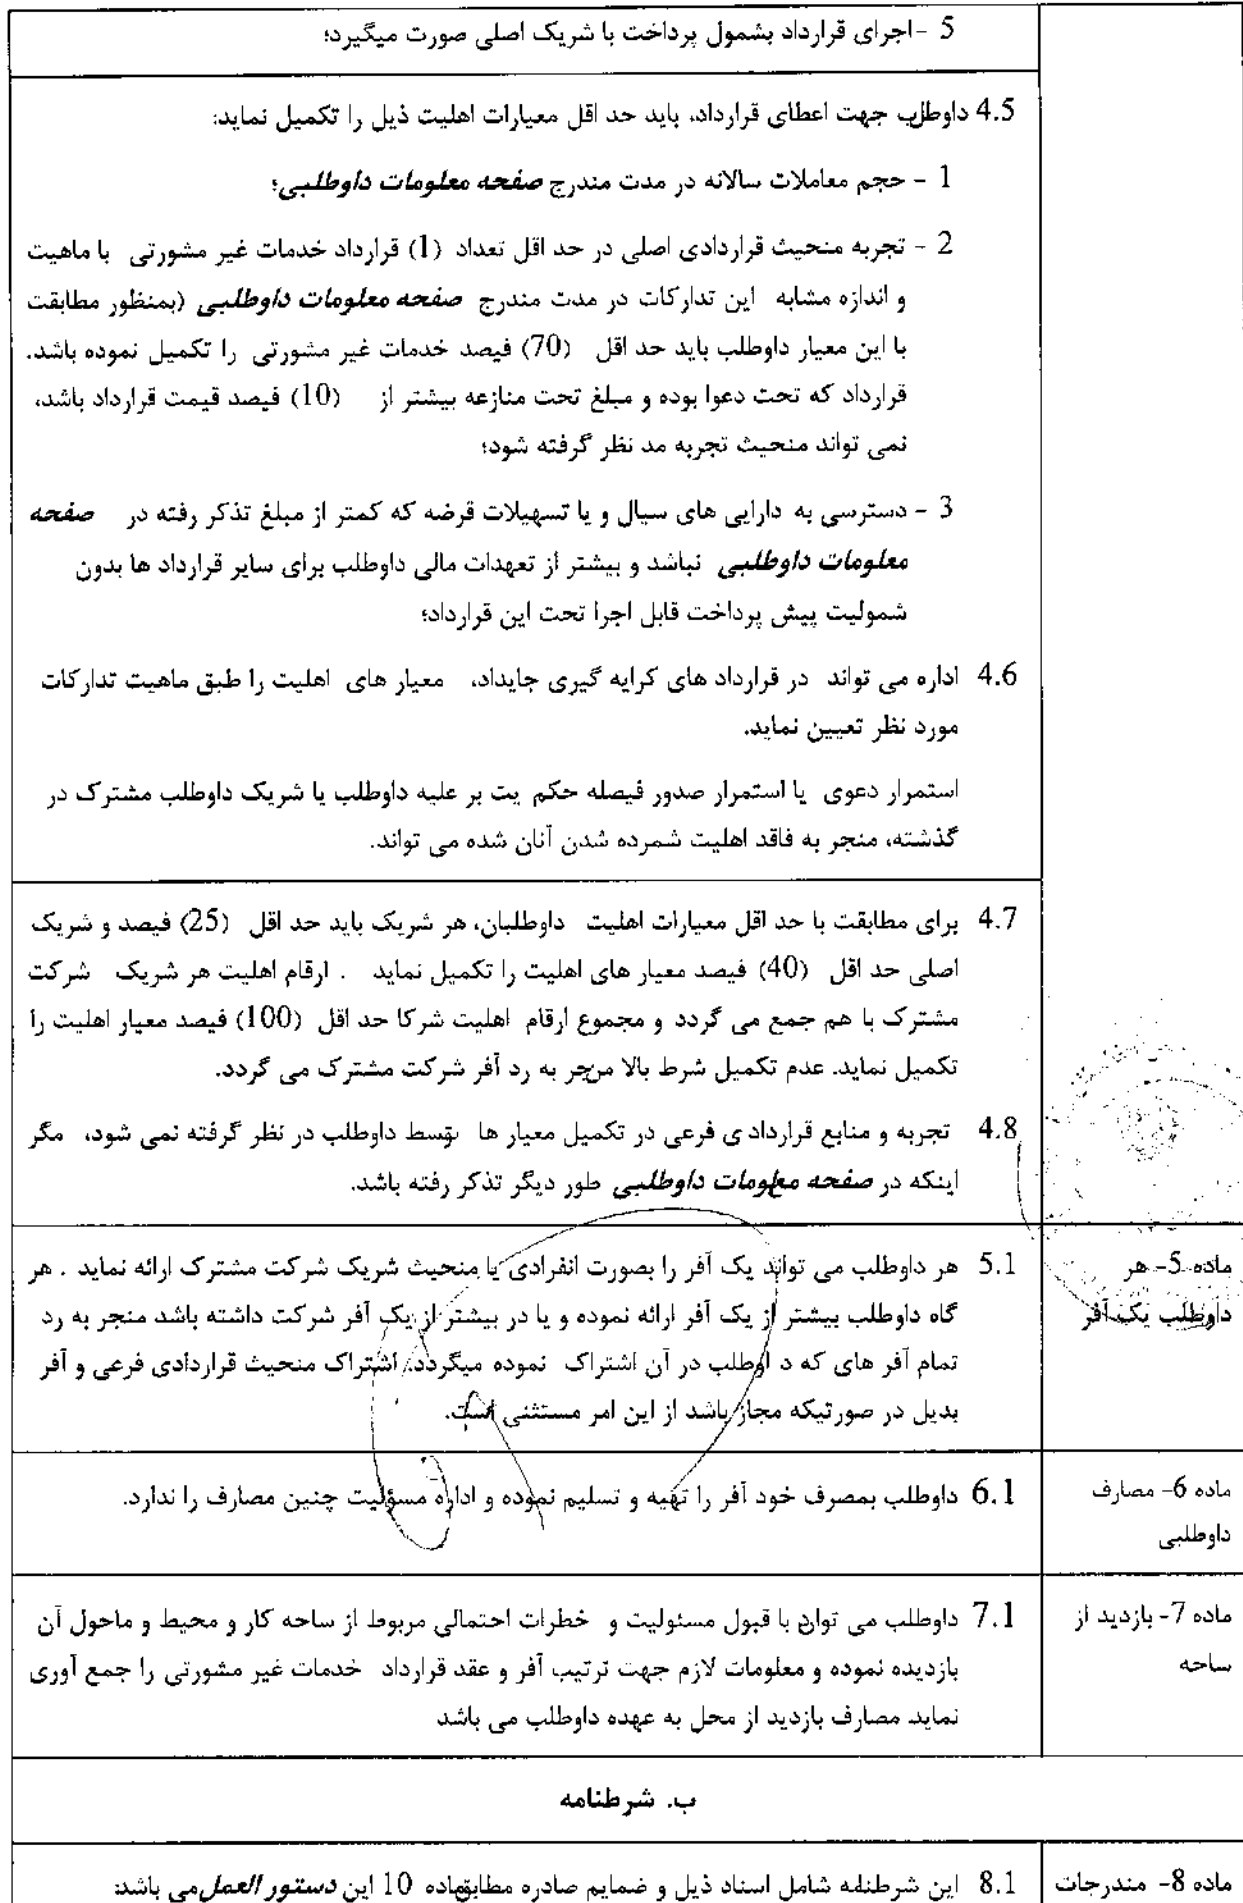 5 -اجرای قرارداد بشمول پرداخت با شریک اصلی صورت میگیرد؛
4.5 داوطلب جهت اعطای قرارداد، باید حد اقل معیارات اهلیت ذیل را تکمیل نماید:
1 - حجم معاملات سالانه در مدت مندرج صفحه معلومات داوطلبی؛
2 - تجربه منحیث قراردادی اصلی در حد اقل تعداد (1) قرارداد خدمات غیر مشورتی با ماهیت
و اندازه مشابه این تدارکات در مدت مندرج صفحه معلومات داوطلبی (بمنظور مطابقت
با این معیار داوطلب باید حد اقل (70) فیصد خدمات غیر مشورتی را تکمیل نموده باشد.
قرارداد که تحت دعوا بوده و مبلغ تحت منازعه بیشتر از (10) فیصد قیمت قرارداد باشد،
نمی تواند منحیث تجربه مد نظر گرفته شود؛
3 - دسترسی به دارایی های سیال و یا تسهیلات قرضه که کمتر از مبلغ تذکر رفته در صفحه
معلومات داوطلبی نباشد و بیشتر از تعهدات مالی داوطلب برای سایر قرارداد ها بدون
شمولیت پیش پرداخت قابل اجرا تحت این قرارداد؛
4.6 اداره می تواند در قرارداد های کرایه گیری جایداد، معیار های اهلیت را طبق ماهیت تدارکات
مورد نظر تعیین نماید.
استمرار دعوی یا استمرار صدور فیصله حکم یت بر علیه داوطلب یا شریک داوطلب مشترک در
گذشته، منجر به فاقد اهلیت شمرده شدن آنان شده می تواند.
4.7 برای مطابقت با حد اقل معیارات اهلیت داوطلبان، هر شریک باید حد اقل (25) فیصد و شریک
اصلی حد اقل (40) فیصد معیار های اهلیت را تکمیل نماید . ارقام اهلیت هر شریک شرکت
مشترک با هم جمع می گردد و مجموع ارقام اهلیت شرکا حد اقل (100) فیصد معیار اهلیت را
تکمیل نماید. عدم تکمیل شرط بالا منجر به رد آفر شرکت مشترک می گردد.
4.8 تجربه و منابع قرارداد ی فرعی در تکمیل معیار ها توسط داوطلب در نظر گرفته نمی شود، مگر
اینکه در صفحه معلومات داوطلبی طور دیگر تذکر رفته باشد.
ماده 5- هر
داوطلب یک آفر
5.1 هر داوطلب می تواند یک آفر را بصورت انفرادی یا منحیث شریک شرکت مشترک ارائه نماید . هر
گاه داوطلب بیشتر از یک آفر ارائه نموده و یا در بیشتر از یک آفر شرکت داشته باشد منجر به رد
تمام آفر های که د اوطلب در آن اشتراک نموده میگردد. اشتراک منحیث قراردادی فرعی و آفر
بدیل در صورتیکه مجاز باشد از این امر مستثنی است.
ماده 6- مصارف
داوطلبی
6.1 داوطلب بمصرف خود آفر را تهیه و تسلیم نموده و اداره مسؤلیت چنین مصارف را ندارد.
ماده 7- بازدید از
ساحه
7.1 داوطلب می تواند با قبول مسئولیت و خطرات احتمالی مربوط از ساحه کار و محیط و ماحول آن
بازدیده نموده و معلومات لازم جهت ترتیب آفر و عقد قرارداد خدمات غیر مشورتی را جمع آوری
نماید. مصارف بازدید از محل به عهده داوطلب می باشد
ب. شرطنامه
ماده 8- مندرجات
8.1 این شرطنامه شامل اسناد ذیل و ضمایم صادره مطابق ماده 10 این دستور العمل می باشد: